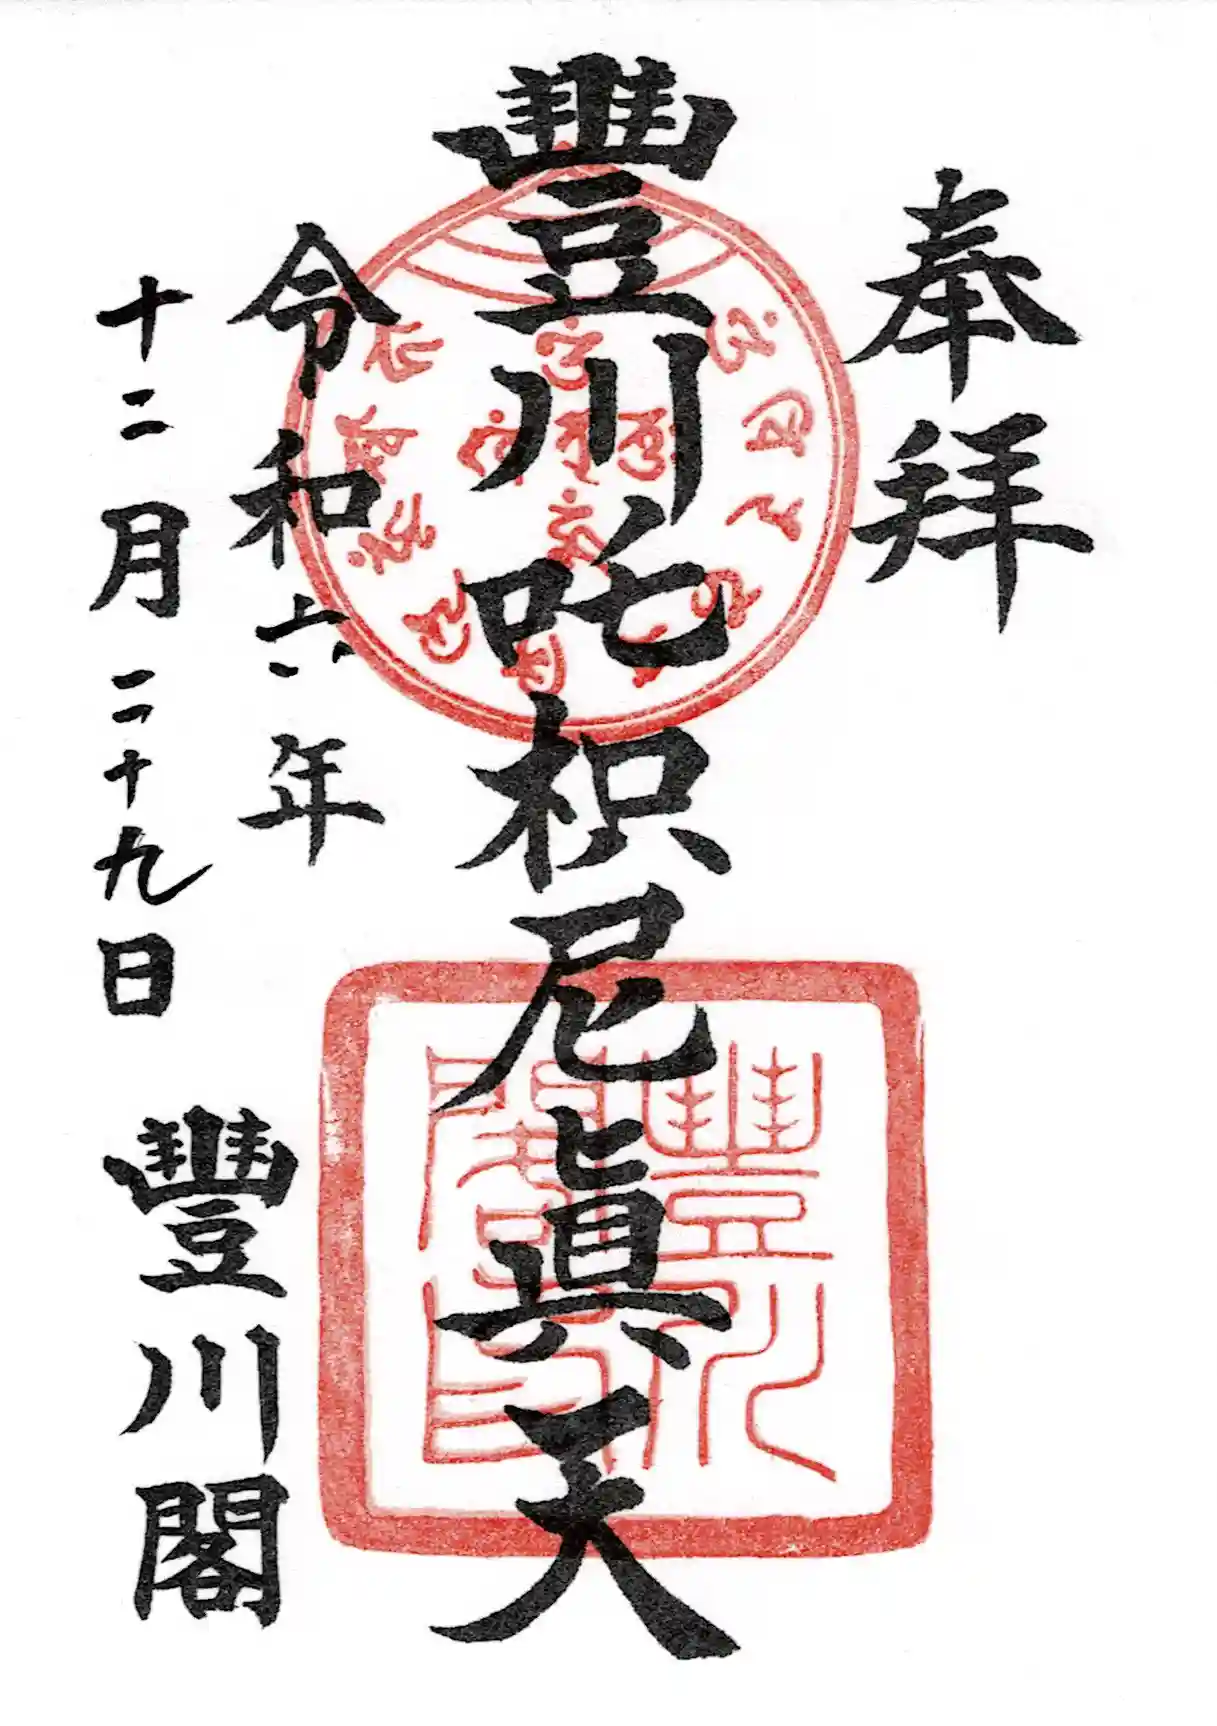 奉拜
豐川吒枳尼眞天
令和六年
十二月二十九日
豐川閣
豐川
閣印